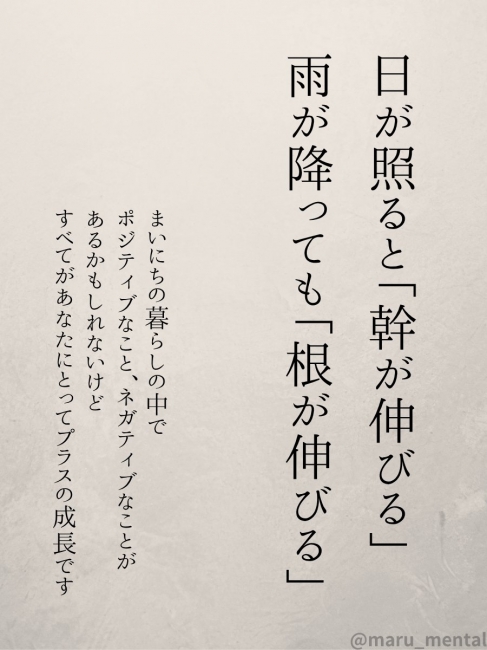 日が照ると「幹が伸びる」
雨が降っても「根が伸びる」
まいにちの暮らしの中で
ポジティブなこと、ネガティブなことが
あるかもしれないけど
すべてがあなたにとってプラスの成長です
@maru_mental